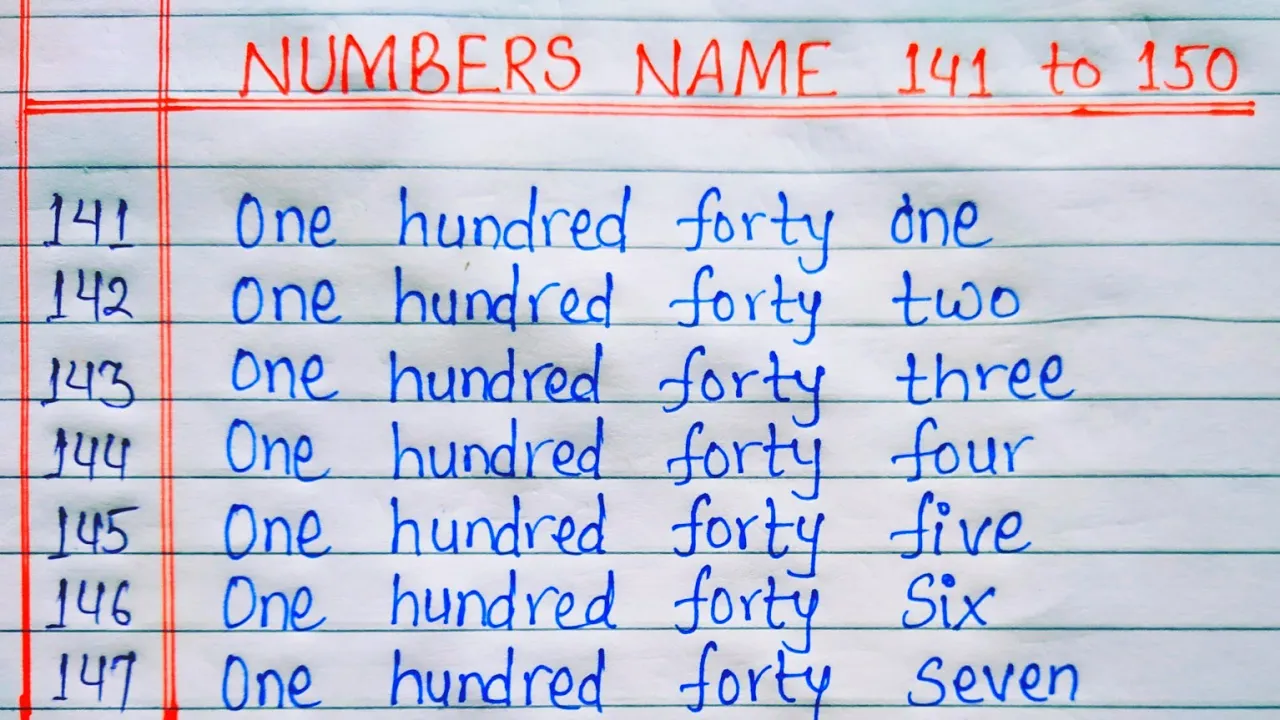 NUMBERS NAME 141 to 150
141 One hundred forty one
142 One hundred forty two
143 One hundred forty three
144 One hundred forty four
145 One hundred forty five
146 One hundred forty Six
147 One hundred forty seven